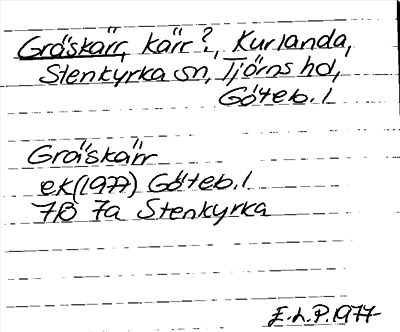 Gräskärr, kärr?, Kurlanda,
Stenkyrka sn, Tjörns hd,
Göteb. l
Gräskärr
ek(1977) Göteb. l
7B 7a Stenkyrka
E.L.P. 1977